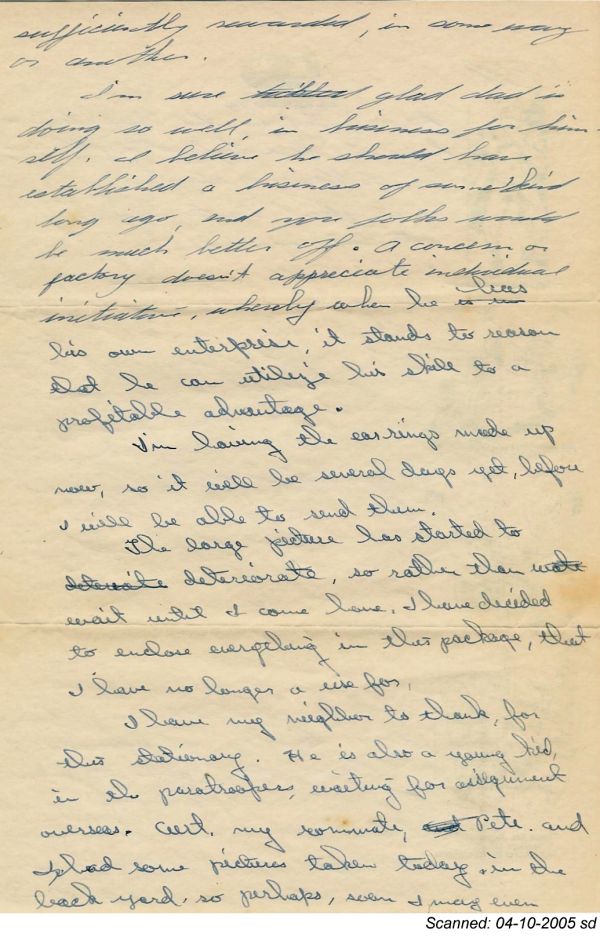 sufficiently rewarded, in some way
or another.
I'm sure glad dad is
doing so well, in business for him-
self. I believe he should have
established a business of some kind
long ago, and you folks would
be much better off. A concern or
factory doesn't appreciate individual
initiative, whereby when he has
his own enterprise, it stands to reason
that he can utilize his skill to a
profitable advantage.
I'm having the earrings made up
now, so it will be several days yet, before
I will be able to send them.
The large picture has started to
deteriorate, so rather than
wait until I come home, I have decided
to enclose everything in this package, that
I have no longer a use for.
I have my neighbor to thank, for
this stationary. He is also a young kid,
in the paratroopers, waiting for assignment
overseas. Curt, my roommate, Pete. and
I had some pictures taken today, in the
back yard. so perhaps, soon I may even
Scanned: 04-10-2005 sd